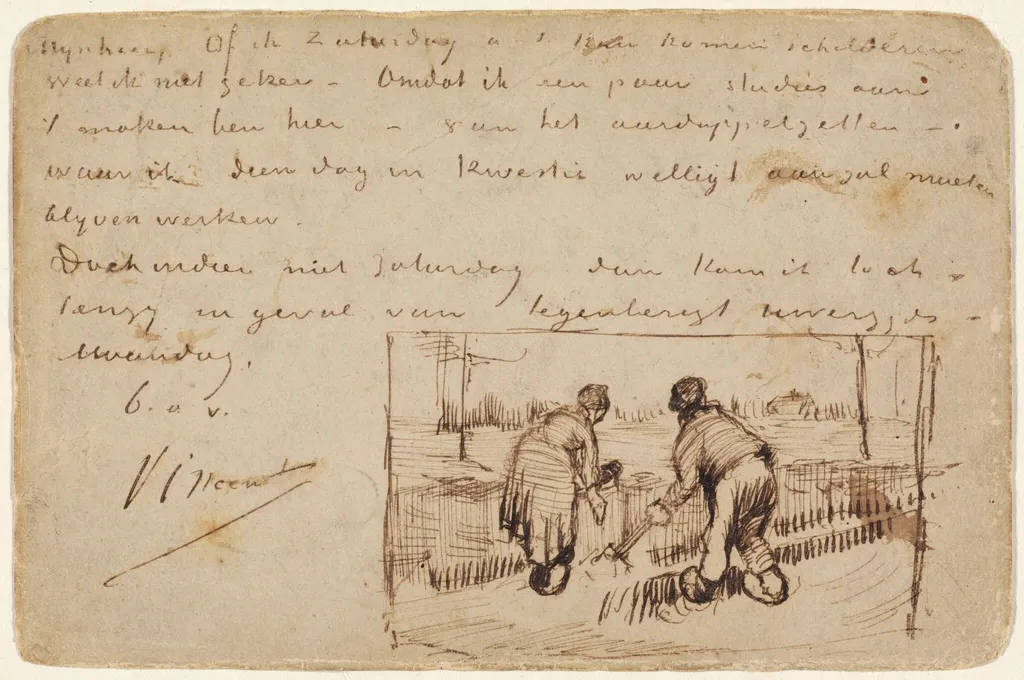 Mynheer, Of ik Zaturdag a s. kan komen schilderen
weet ik niet zeker – Omdat ik een paar studies aan
't maken ben hier – van het aardappelzetten –
waar ik dien dag in kwestie welligt aan zal moeten
blyven werken.
Doch indien niet Zaturdag dan kom ik toch –
tenzy in geval van tegenberigt uwerzyds –
Maandag.
b. a. v.
Vincent